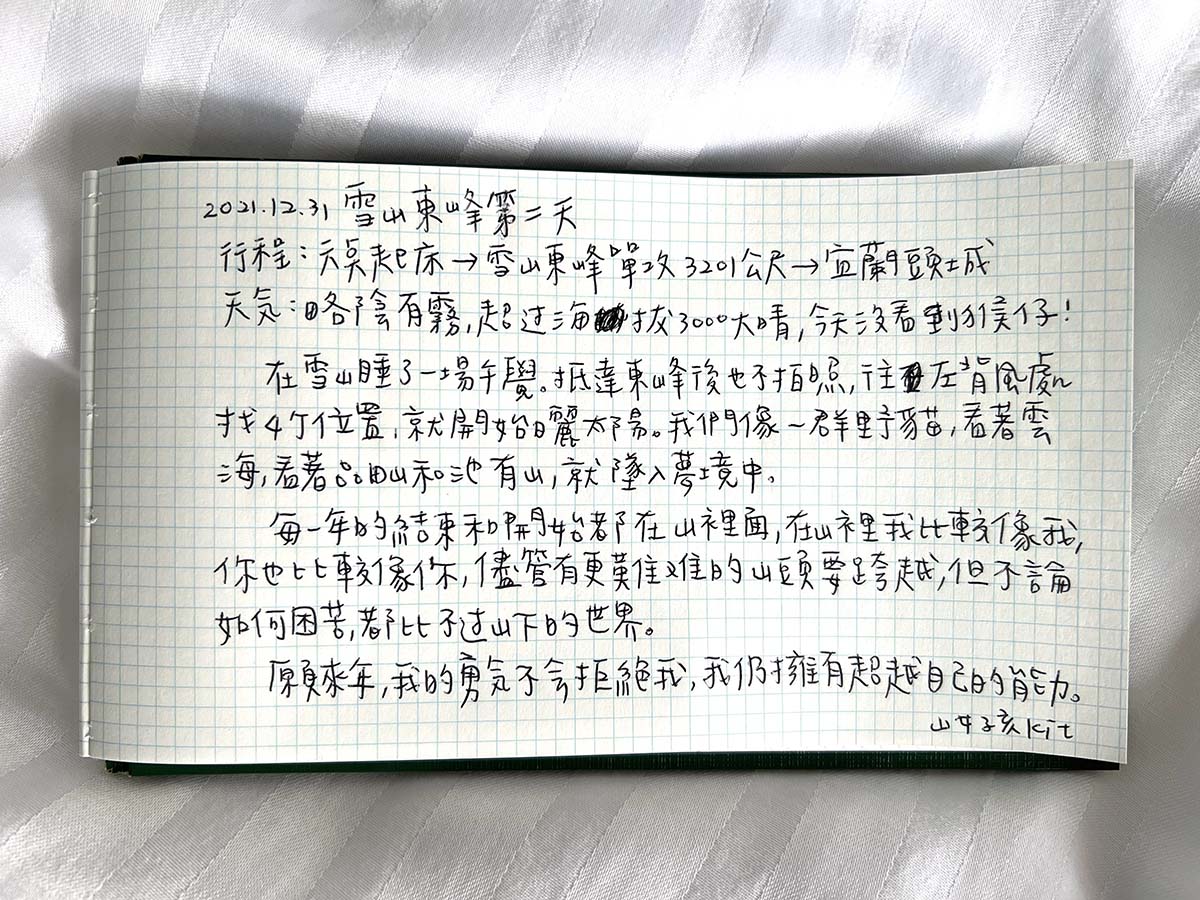 2021.12.31 雪山東峰第二天
行程:天亮起床→雪山東峰單攻3201公尺→宜蘭頭城
天気:略陰有霧,超过海拔3000大晴,今天沒看到猴仔!
在雪山睡了一場午覺。抵達東峰後也不拍照,往左背風處
找个位置,就開始曬太陽。我們像一群野貓,看著雲
海,看著品田山和池有山,就墜入夢境中。
每一年的結束和開始都在山裡面,在山裡我比較像我,
你也比較像你,儘管有更艱难的山頭要跨越,但不論
如何困苦,都比不过山下的世界。
願來年,我的勇気不会拒絕我,我仍擁有超越自己的能力。
山女孩Kit